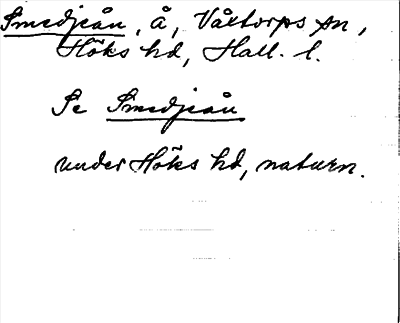 Smedjeån, å, Våxtorps sn,
Höks hd, Hall. l.
Se Smedjeån
under Höks hd, naturn.